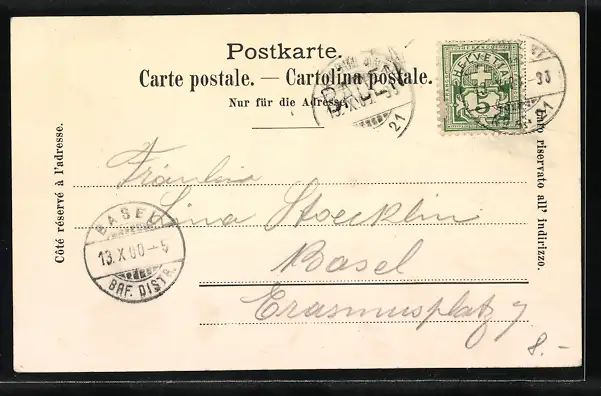 Postkarte.
Carte postale. — Cartolina postale.
Nur für die Adresse.
Côté réservé à l'adresse.
Lato riservato all' indirizzo.
HELVETIA
5
BADEN
13. X. 00
21
21
BASEL
13. X. 00 – 5
BRF. DISTR.
Fräulein
Lina Stoecklin
Basel
Erasmusplatz 7
8.-